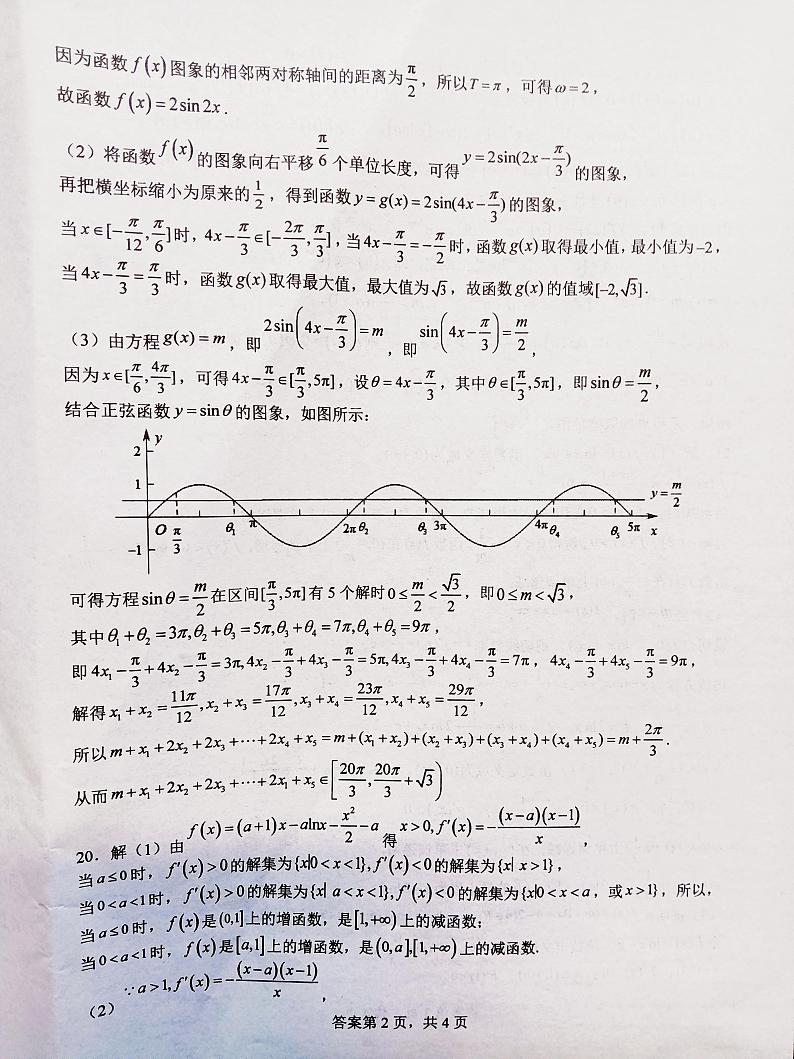 因为函数 f(x) 图象的相邻两对称轴间的距离为 π/2，所以 T = π，可得 ω = 2，
故函数 f(x) = 2sin 2x．
（2）将函数 f(x) 的图象向右平移 π/6 个单位长度，可得 y = 2sin(2x − π/3) 的图象，
再把横坐标缩小为原来的 1/2，得到函数 y = g(x) = 2sin(4x − π/3) 的图象，
当 x∈[−π/12, π/6] 时，4x − π/3 ∈[−2π/3, π/3]，当 4x − π/3 = −π/2 时，函数 g(x) 取得最小值，最小值为 −2，
当 4x − π/3 = π/3 时，函数 g(x) 取得最大值，最大值为 √3，故函数 g(x) 的值域[−2, √3]．
（3）由方程 g(x) = m，即 2sin(4x − π/3) = m，即 sin(4x − π/3) = m/2，
因为 x∈[π/6, 4π/3]，可得 4x − π/3 ∈[π/3, 5π]，设 θ = 4x − π/3，其中 θ∈[π/3, 5π]，即 sin θ = m/2，
结合正弦函数 y = sin θ 的图象，如图所示：
y
2
1
y = m/2
O π/3 θ₁ π 2π θ₂ θ₃ 3π 4π θ₄ θ₅ 5π x
−1
可得方程 sin θ = m/2 在区间[π/3, 5π] 有 5 个解时 0 ≤ m/2 < √3/2，即 0 ≤ m < √3，
其中 θ₁ + θ₂ = 3π, θ₂ + θ₃ = 5π, θ₃ + θ₄ = 7π, θ₄ + θ₅ = 9π，
即 4x₁ − π/3 + 4x₂ − π/3 = 3π, 4x₂ − π/3 + 4x₃ − π/3 = 5π, 4x₃ − π/3 + 4x₄ − π/3 = 7π，4x₄ − π/3 + 4x₅ − π/3 = 9π，
解得 x₁ + x₂ = 11π/12, x₂ + x₃ = 17π/12, x₃ + x₄ = 23π/12, x₄ + x₅ = 29π/12，
所以 m + x₁ + 2x₂ + 2x₃ + ⋯ + 2x₄ + x₅ = m + (x₁ + x₂) + (x₂ + x₃) + (x₃ + x₄) + (x₄ + x₅) = m + 2π/3．
从而 m + x₁ + 2x₂ + 2x₃ + ⋯ + 2x₁ + x₅ ∈ [20π/3, 20π/3 + √3)
20．解（1）由 f(x) = (a+1)x − alnx − x²/2 − a 得 x > 0, f′(x) = −(x−a)(x−1)/x，
当 a ≤ 0 时，f′(x) > 0 的解集为 {x|0 < x < 1}, f′(x) < 0 的解集为 {x| x > 1}，
当 0 < a < 1 时，f′(x) > 0 的解集为 {x| a < x < 1}, f′(x) < 0 的解集为 {x|0 < x < a，或 x > 1}，所以，
当 a ≤ 0 时，f(x) 是 (0,1] 上的增函数，是 [1,+∞) 上的减函数；
当 0 < a < 1 时，f(x) 是 [a,1] 上的增函数，是 (0,a],[1,+∞) 上的减函数.
（2）∵ a > 1, f′(x) = −(x−a)(x−1)/x，
答案第 2 页，共 4 页